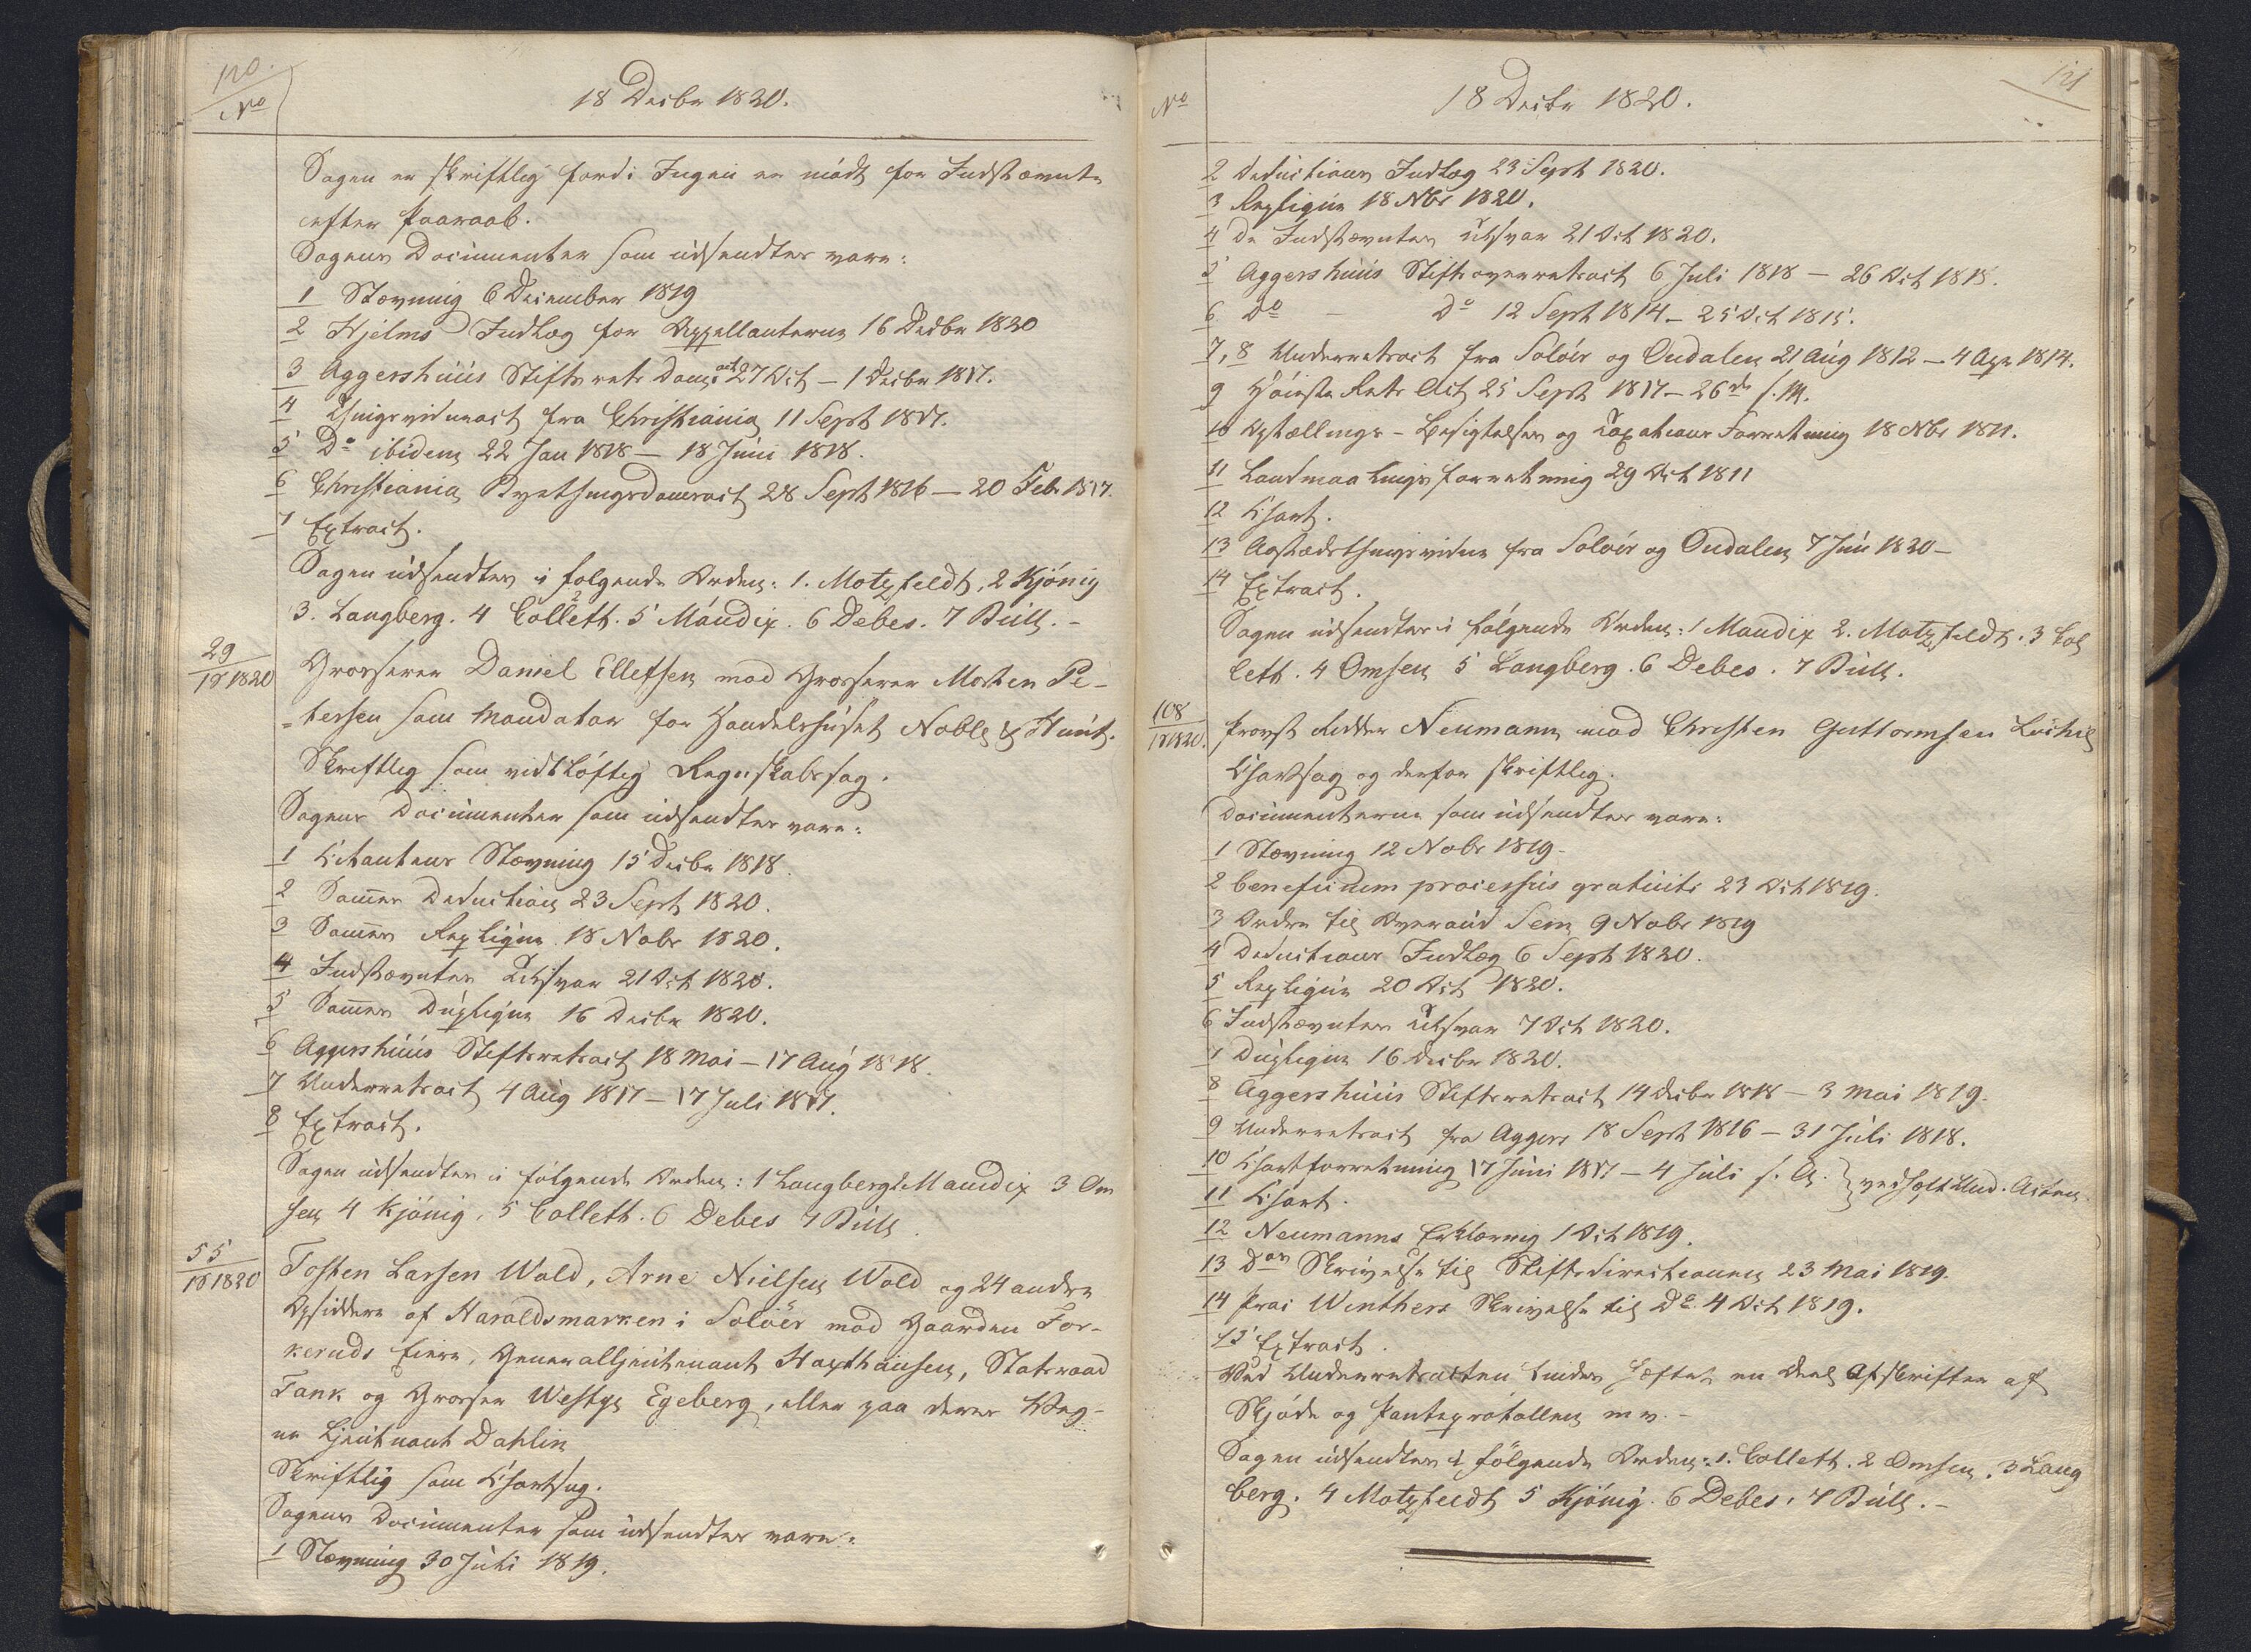 120.
No
18 Decbr 1820.
Sagen er skriftlig fordi Ingen er mödt for Indstævnte
efter Paaraab.
Sagens Documenter som udsendtes vare:
1 Stævning 6 December 1819
2 Hjelms Indlæg for Appellanterne 16 Decbr 1820
3 Aggershuus Stiftsrets Doms act 27 Oct – 1 Decbr 1817.
4 Thingsvidneact fra Christiania 11 Sept 1817.
5 Do ibidem 22 Jan 1818 – 18 Juni 1818.
6 Christiania Byethingsdomsact 28 Sept 1816 – 20 Feb. 1817.
7 Extract.
Sagen udsendtes i folgende Orden: 1. Motzfeldt, 2 Kjönig
3. Langberg. 4 Collett. 5 Mandix. 6 Debes. 7 Bull. –
29
18 1820
Grosserer Daniel Ellefsen mod Grosserer Morten Pe-
-tersen som Mandatar for Handelshuset Noble & Hunt.
Skriftlig som vidtlöftig Regnskabssag.
Sagens Documenter som udsendtes vare:
1 Citantens Stævning 15 Decbr 1818.
2 Sammes Deduction 23 Sept 1820.
3 Sammes Replique 18 Nobr 1820.
4 Indstævntes Tilsvar 21 Oct 1820.
5 Sammes Duplique 16 Decbr 1820.
6 Aggershuus Stiftsretsact 18 Mai – 17 Aug 1818.
7 Underretsact 4 Aug 1817 – 17 Juli 1817.
8 Extract.
Sagen udsendtes i fölgende Orden: 1 Langberg 2 Mandix 3 Om
sen 4 Kjönig. 5 Collett. 6 Debes 7 Bull.
55
18 1820
Tosten Larsen Wold, Arne Nielsen Wold og 24 andre
Opsiddere af Haraldsmarken i Soloër mod Gaarden For-
keruds Eiere, Generallieutenant Haxthausen, Statsraad
Tank og Grosserer Westye Egeberg, eller paa deres Veg-
ne Lieutnant Dahlin
Skriftlig som Chartsag.
Sagens Documenter som udsendtes vare:
1 Stævning 30 Juli 1819.
121
No
18 Decbr 1820.
2 Deductions Indlæg 23 Sept 1820.
3 Replique 18 Nbr 1820.
4 De Indstævntes Tilsvar 21 Oct 1820.
5 Aggershuus Stiftsoverretsact 6 Juli 1818 – 26 Oct 1818.
6 Do – Do 12 Sept 1814 – 25 Oct 1815.
7, 8 Underretsact fra Soloër og Oudalen 21 Aug 1812 – 4 Apr 1814.
9 Höieste Rets Act 25 Sept 1817 – 26de s. M.
10 Optællings – Besigtelses og Taxations Forretning 18 Nbr 1811.
11 Landmaalings forretning 29 Oct 1811
12 Chart.
13 Aastædsthingsvidne fra Soloër og Oudalen 7 Jun 1820 –
14 Extract.
Sagen udsendtes i fölgende Orden: 1 Mandix 2. Motzfeldt. 3 Col
lett. 4 Omsen 5 Langberg. 6 Debes. 7 Bull.
108
18 1820.
Provst Ridder Neumann mod Christen Guttormsen
Chartsag og derfor skriftlig.
Documenterne som udsendtes vare:
1 Stævning 12 Nobr 1819 –
2 beneficium processus gratuiti 23 Oct 1819.
3 Ordre til Overaud Sem 9 Nobr 1819
4 Deductions Indlæg 6 Sept 1820.
5 Replique 20 Oct 1820.
6 Indstævntes Tilsvar 7 Oct 1820.
7 Duplique 16 Decbr 1820.
8 Aggershuus Stiftsretsact 14 Decbr 1818 – 3 Mai 1819.
9 Underretsact fra Aggers 18 Sept 1816 – 31 Juli 1818.
10 Chartforretning 17 Juni 1817 – 4 Juli s. A. } vedhæft Und. Acten.
11 Chart.
12 Neumanns Erklæring 1 Oct 1819.
13 Dos Skrivelse til Stiftsdirectionen 23 Mai 1819.
14 Proc Winthers Skrivelse til Do 4 Oct 1819.
15 Extract.
Ved Underretsacten findes hæftet en Deel Afskrifter af
Skjöde og Panteprotollen m v. –
Sagen udsendtes i fölgende Orden: 1. Collett. 2 Omsen. 3 Lang
berg. 4 Motzfeldt 5 Kjönig. 6 Debes. 7 Bull. –